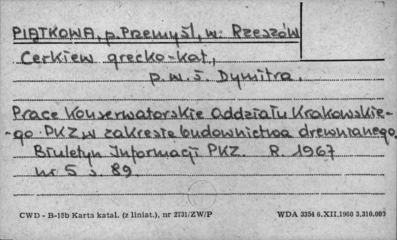 PIĄTKOWA, p. Przemyśl, w: Rzeszów
Cerkiew grecko-kat.,
p.w.ś. Dymitra.
Prace Konserwatorskie Oddziału Krakowskie-
-go PKZ w zakresie budownictwa drewnianego.
Biuletyn Informacji PKZ. R. 1967
nr 5 s. 89
CWD - B-15b Karta katal. (z liniat.), nr 2731/ZW/P
WDA 3354 6.XII.1960 3.310.000